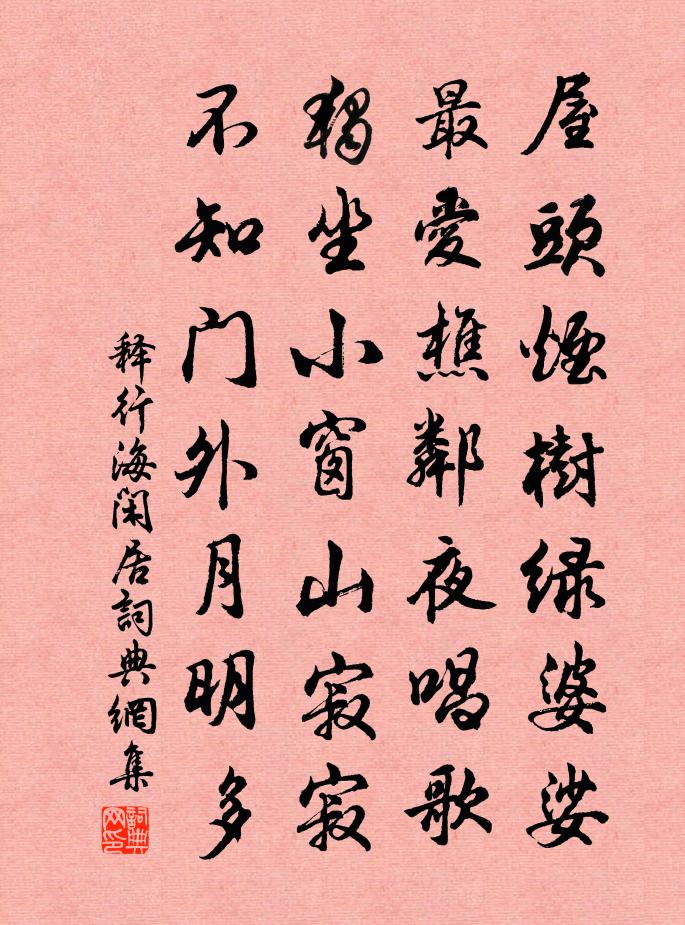 屋頭煙樹绿婆娑
最愛樵鄰夜唱歌
獨坐小窗山寂寂
不知门外月明多
释行海闲居詞典網集
詞典网印